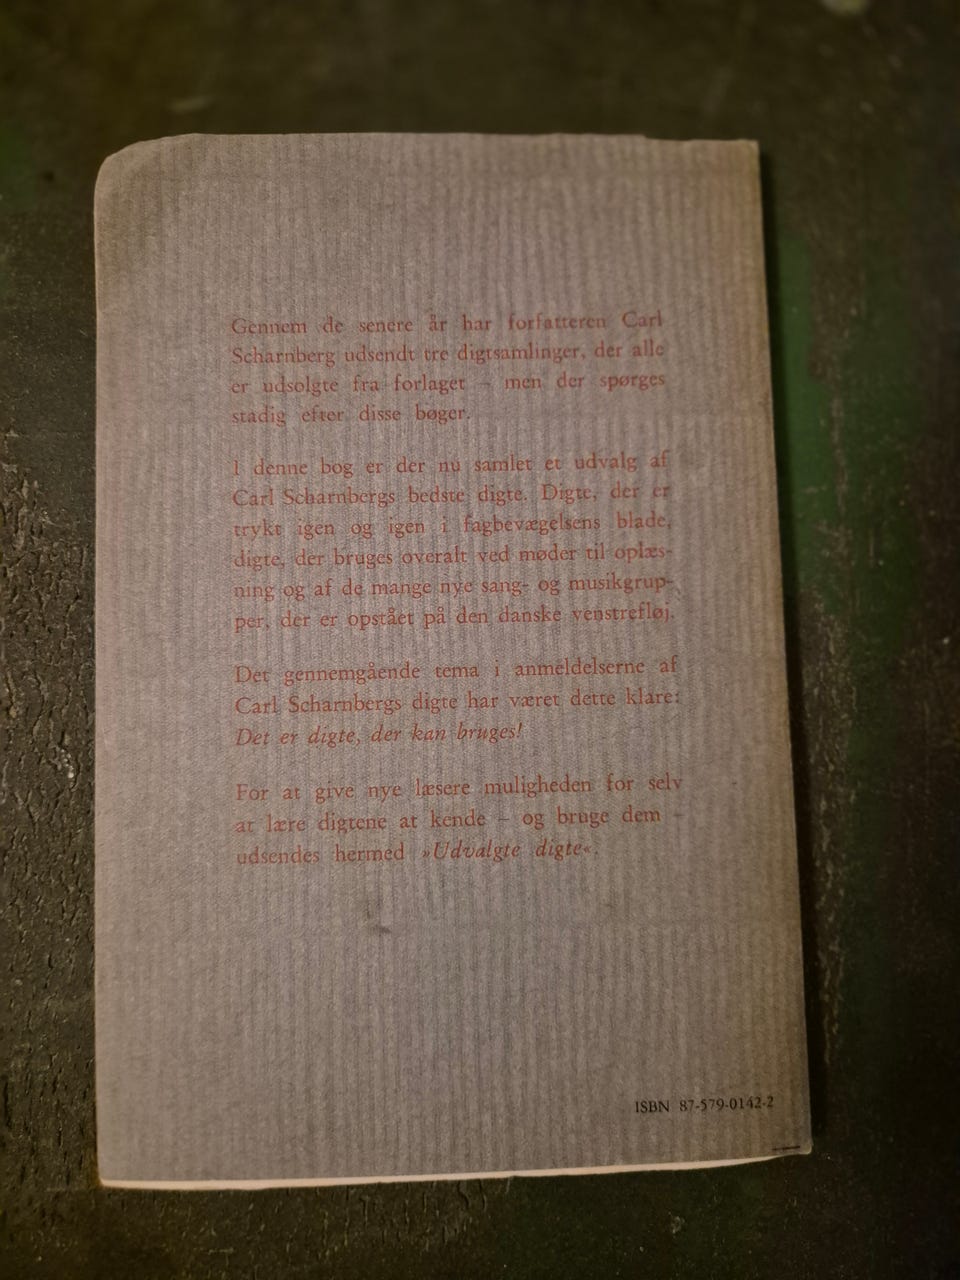 Gennem de senere år har forfatteren Carl
Scharnberg udsendt tre digtsamlinger, der alle
er udsolgte fra forlaget – men der spørges
stadig efter disse bøger.
I denne bog er der nu samlet et udvalg af
Carl Scharnbergs bedste digte. Digte, der er
trykt igen og igen i fagbevægelsens blade,
digte, der bruges overalt ved møder til oplæs-
ning og af de mange nye sang- og musikgrup-
per, der er opstået på den danske venstrefløj.
Det gennemgående tema i anmeldelserne af
Carl Scharnbergs digte har været dette klare:
Det er digte, der kan bruges!
For at give nye læsere muligheden for selv
at lære digtene at kende – og bruge dem –
udsendes hermed »Udvalgte digte«.
ISBN 87-579-0142-2